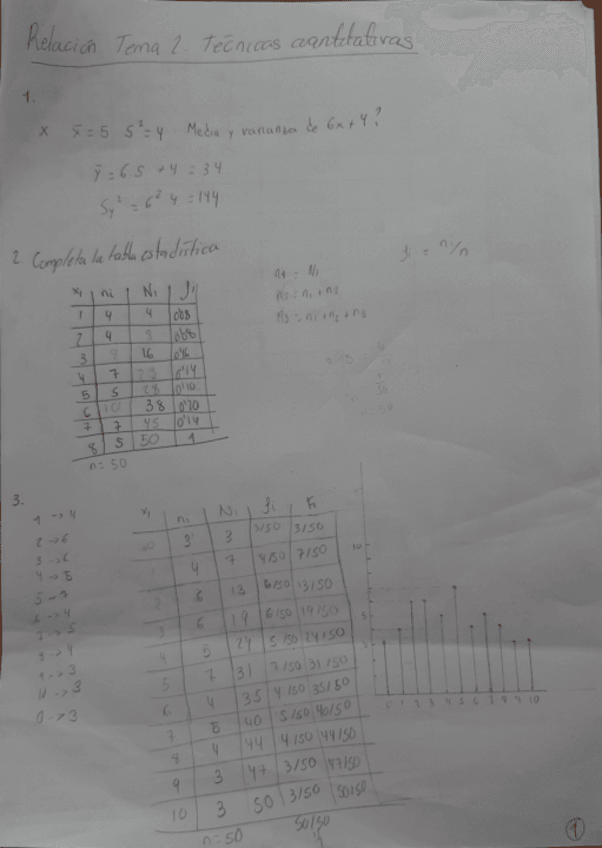 Relación Tema 2. Técnicas cuantitativas
1.
x x̄ = 5 S² = 4 Media y varianza de 6x + 4?
ȳ = 6·5 + 4 = 34
Sy² = 6² 4 = 144
2. Completa la tabla estadística
fi = ni/n
n1 = N1
n2 = n1 + n2
n3 = n1 + n2 + n3
xi ni Ni fi
1 4 4 0'08
2 4 8 0'08
3 8 16 0'16
4 7 23 0'14
5 5 28 0'10
6 10 38 0'20
7 7 45 0'14
8 5 50 1
n = 50
3.
1 -> 4
2 -> 6
3 -> 6
4 -> 5
5 -> 7
6 -> 4
7 -> 5
8 -> 4
9 -> 3
10 -> 3
0 -> 3
xi ni Ni fi Fi
0 3 3 3/50 3/50
1 4 7 4/50 7/50
2 6 13 6/50 13/50
3 6 19 6/50 19/50
4 5 24 5/50 24/50
5 7 31 7/50 31/50
6 4 35 4/50 35/50
7 5 40 5/50 40/50
8 4 44 4/50 44/50
9 3 47 3/50 47/50
10 3 50 3/50 50/50
n = 50 50/50
10
5
3
0 1 2 3 4 5 6 7 8 9 10
1